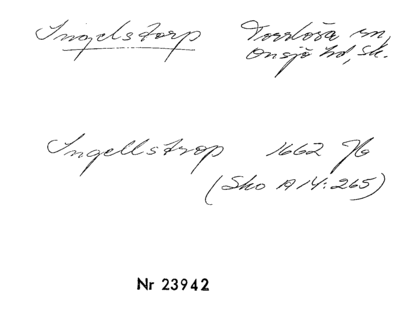 Ingelstorp Torrlösa sn,
Onsjö hd, Sk.
Ingellstrop 1662 7/6
(Sko A 14:265)
Nr 23942